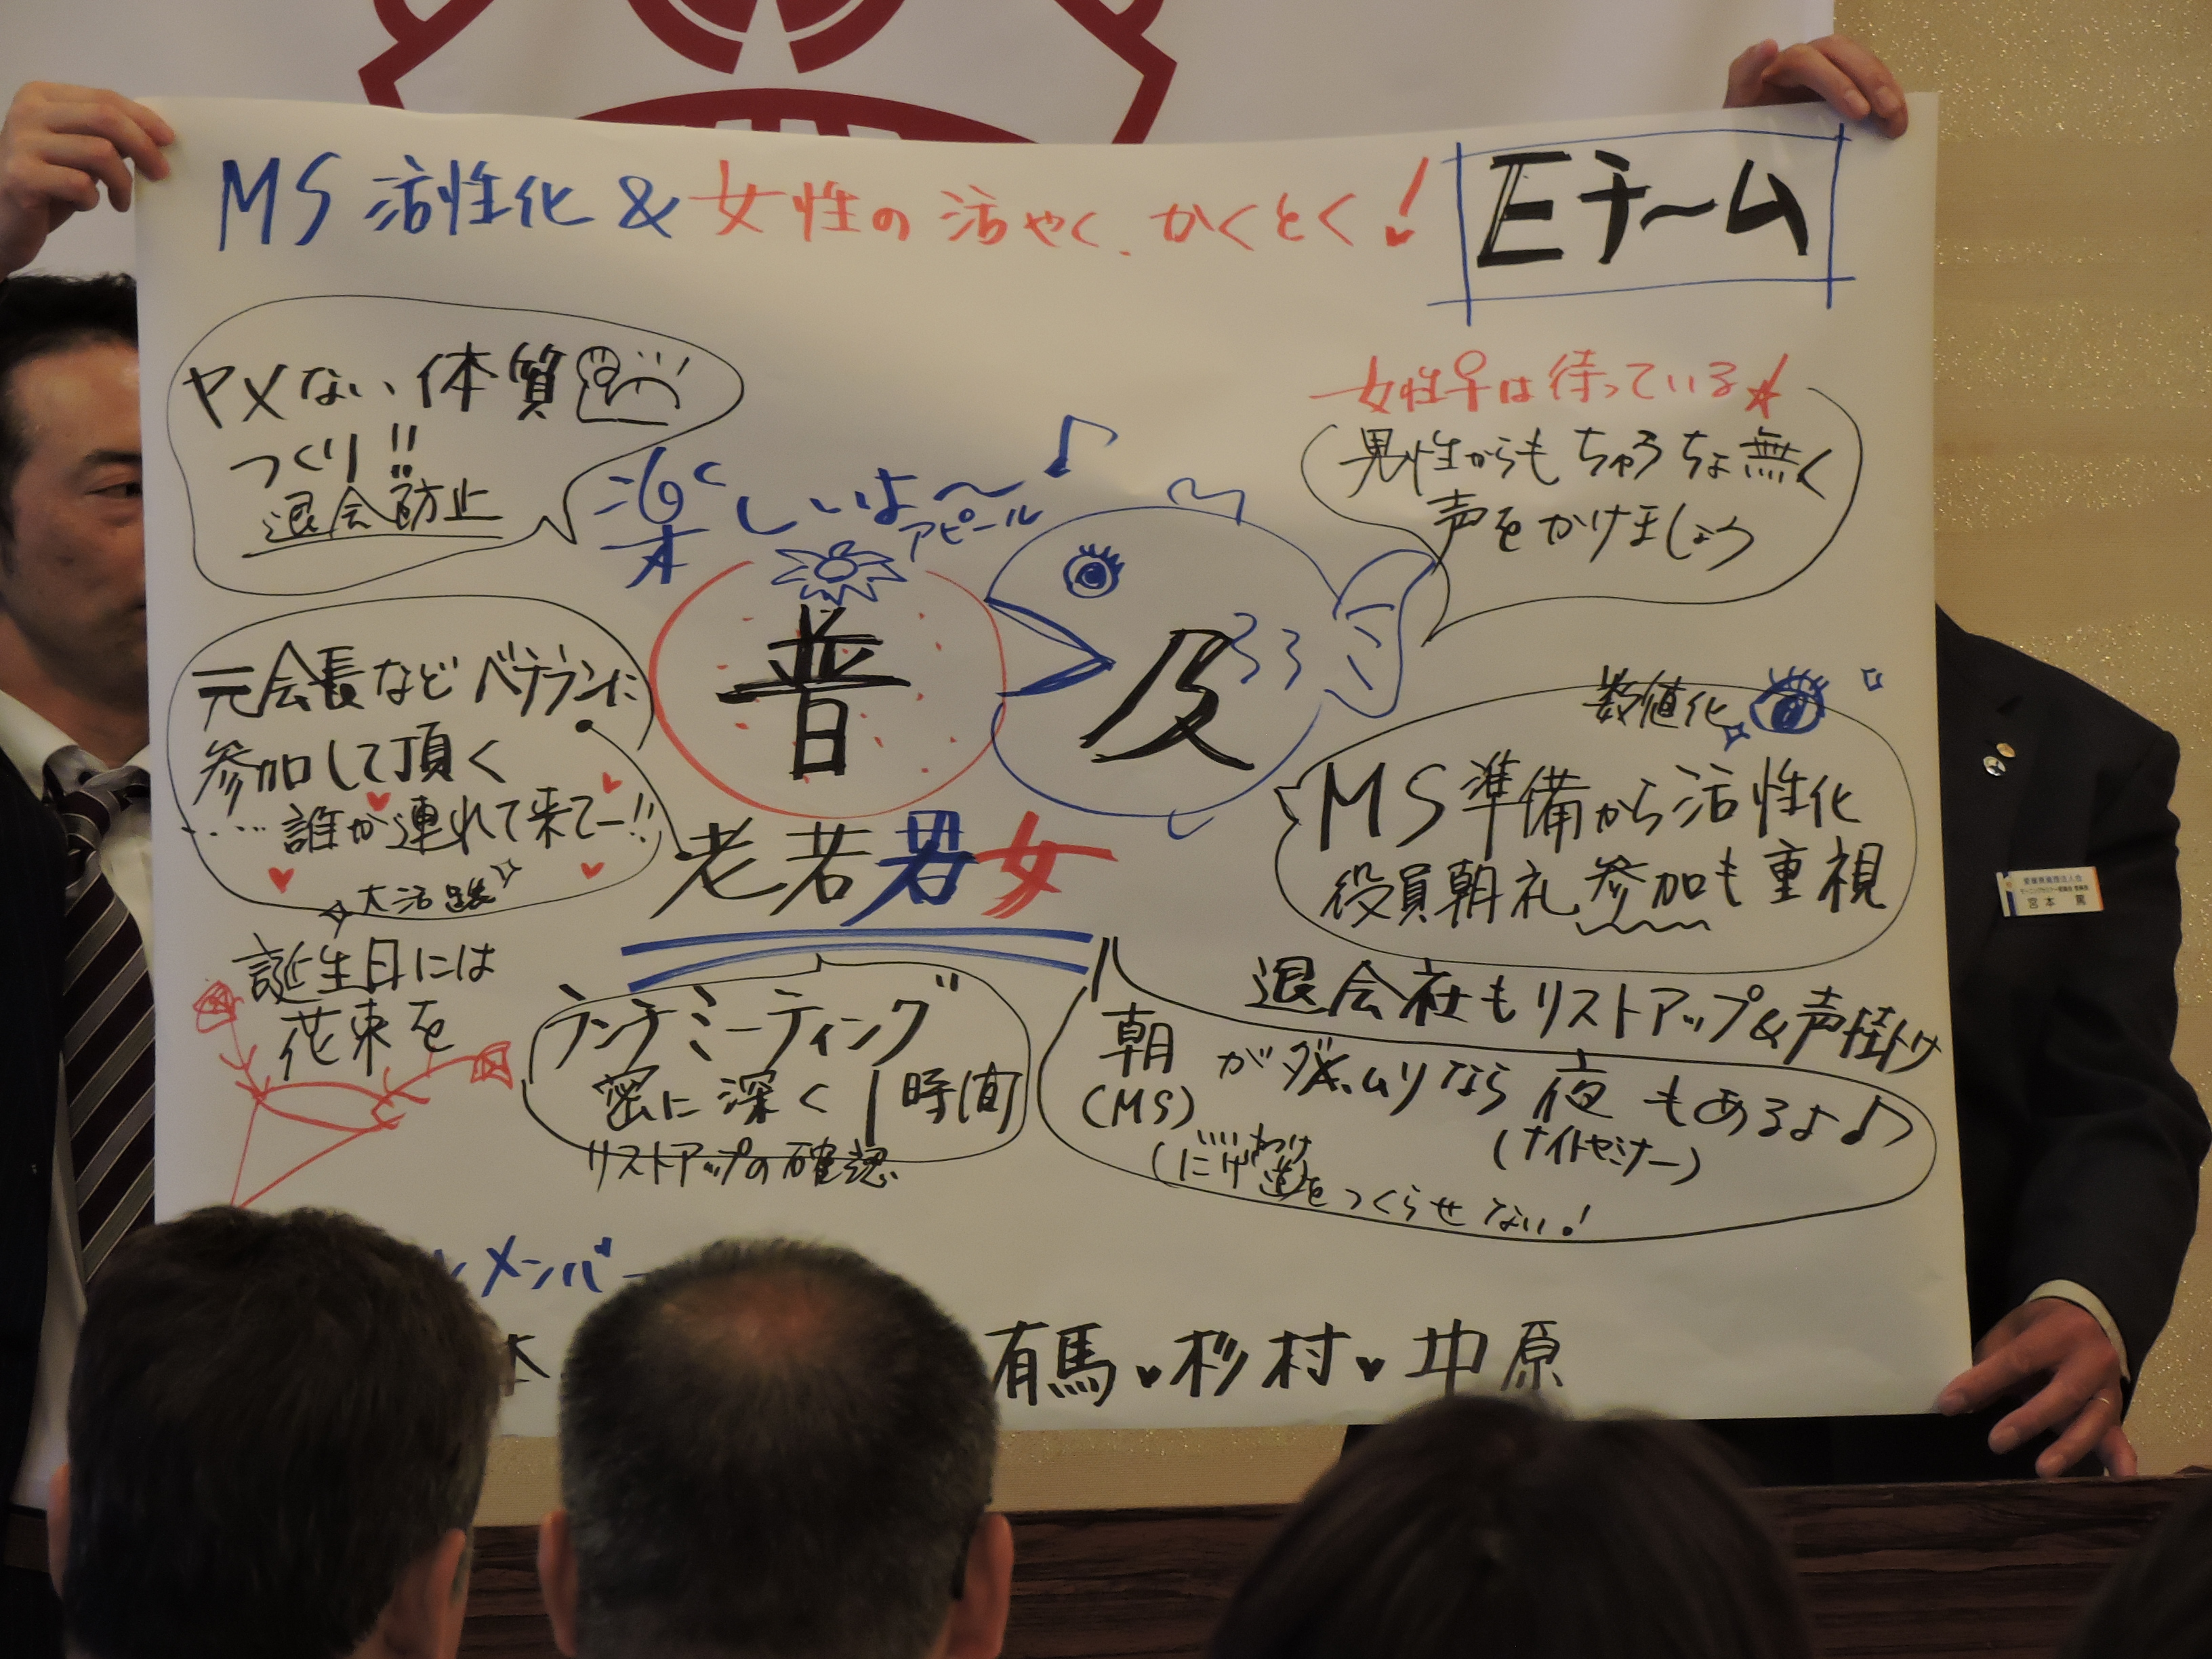 MS 活性化 & 女性の活やく、かくとく!
Eチーム
ヤメない体質
つくり!!
退会防止
楽しいよ〜♪
アピール
女性♀は待っている☆
男性からもちゅうちょ無く
声をかけましょう
普及
老若男女
元会長などベテランに
参加して頂く
‥‥誰か連れて来てー!!
大活躍
誕生日には
花束を
数値化
MS準備から活性化
役員朝礼参加も重視
退会社もリストアップ&声掛け
ランチミーティング
密に深く1時間
リストアップの確認
朝がダメ、ムリなら夜もあるよ♪
(MS)
(ナイトセミナー)
いいわけ
(にげ道をつくらせない!
メンバー
本
有馬♥杉村♥中原
宮本 篤